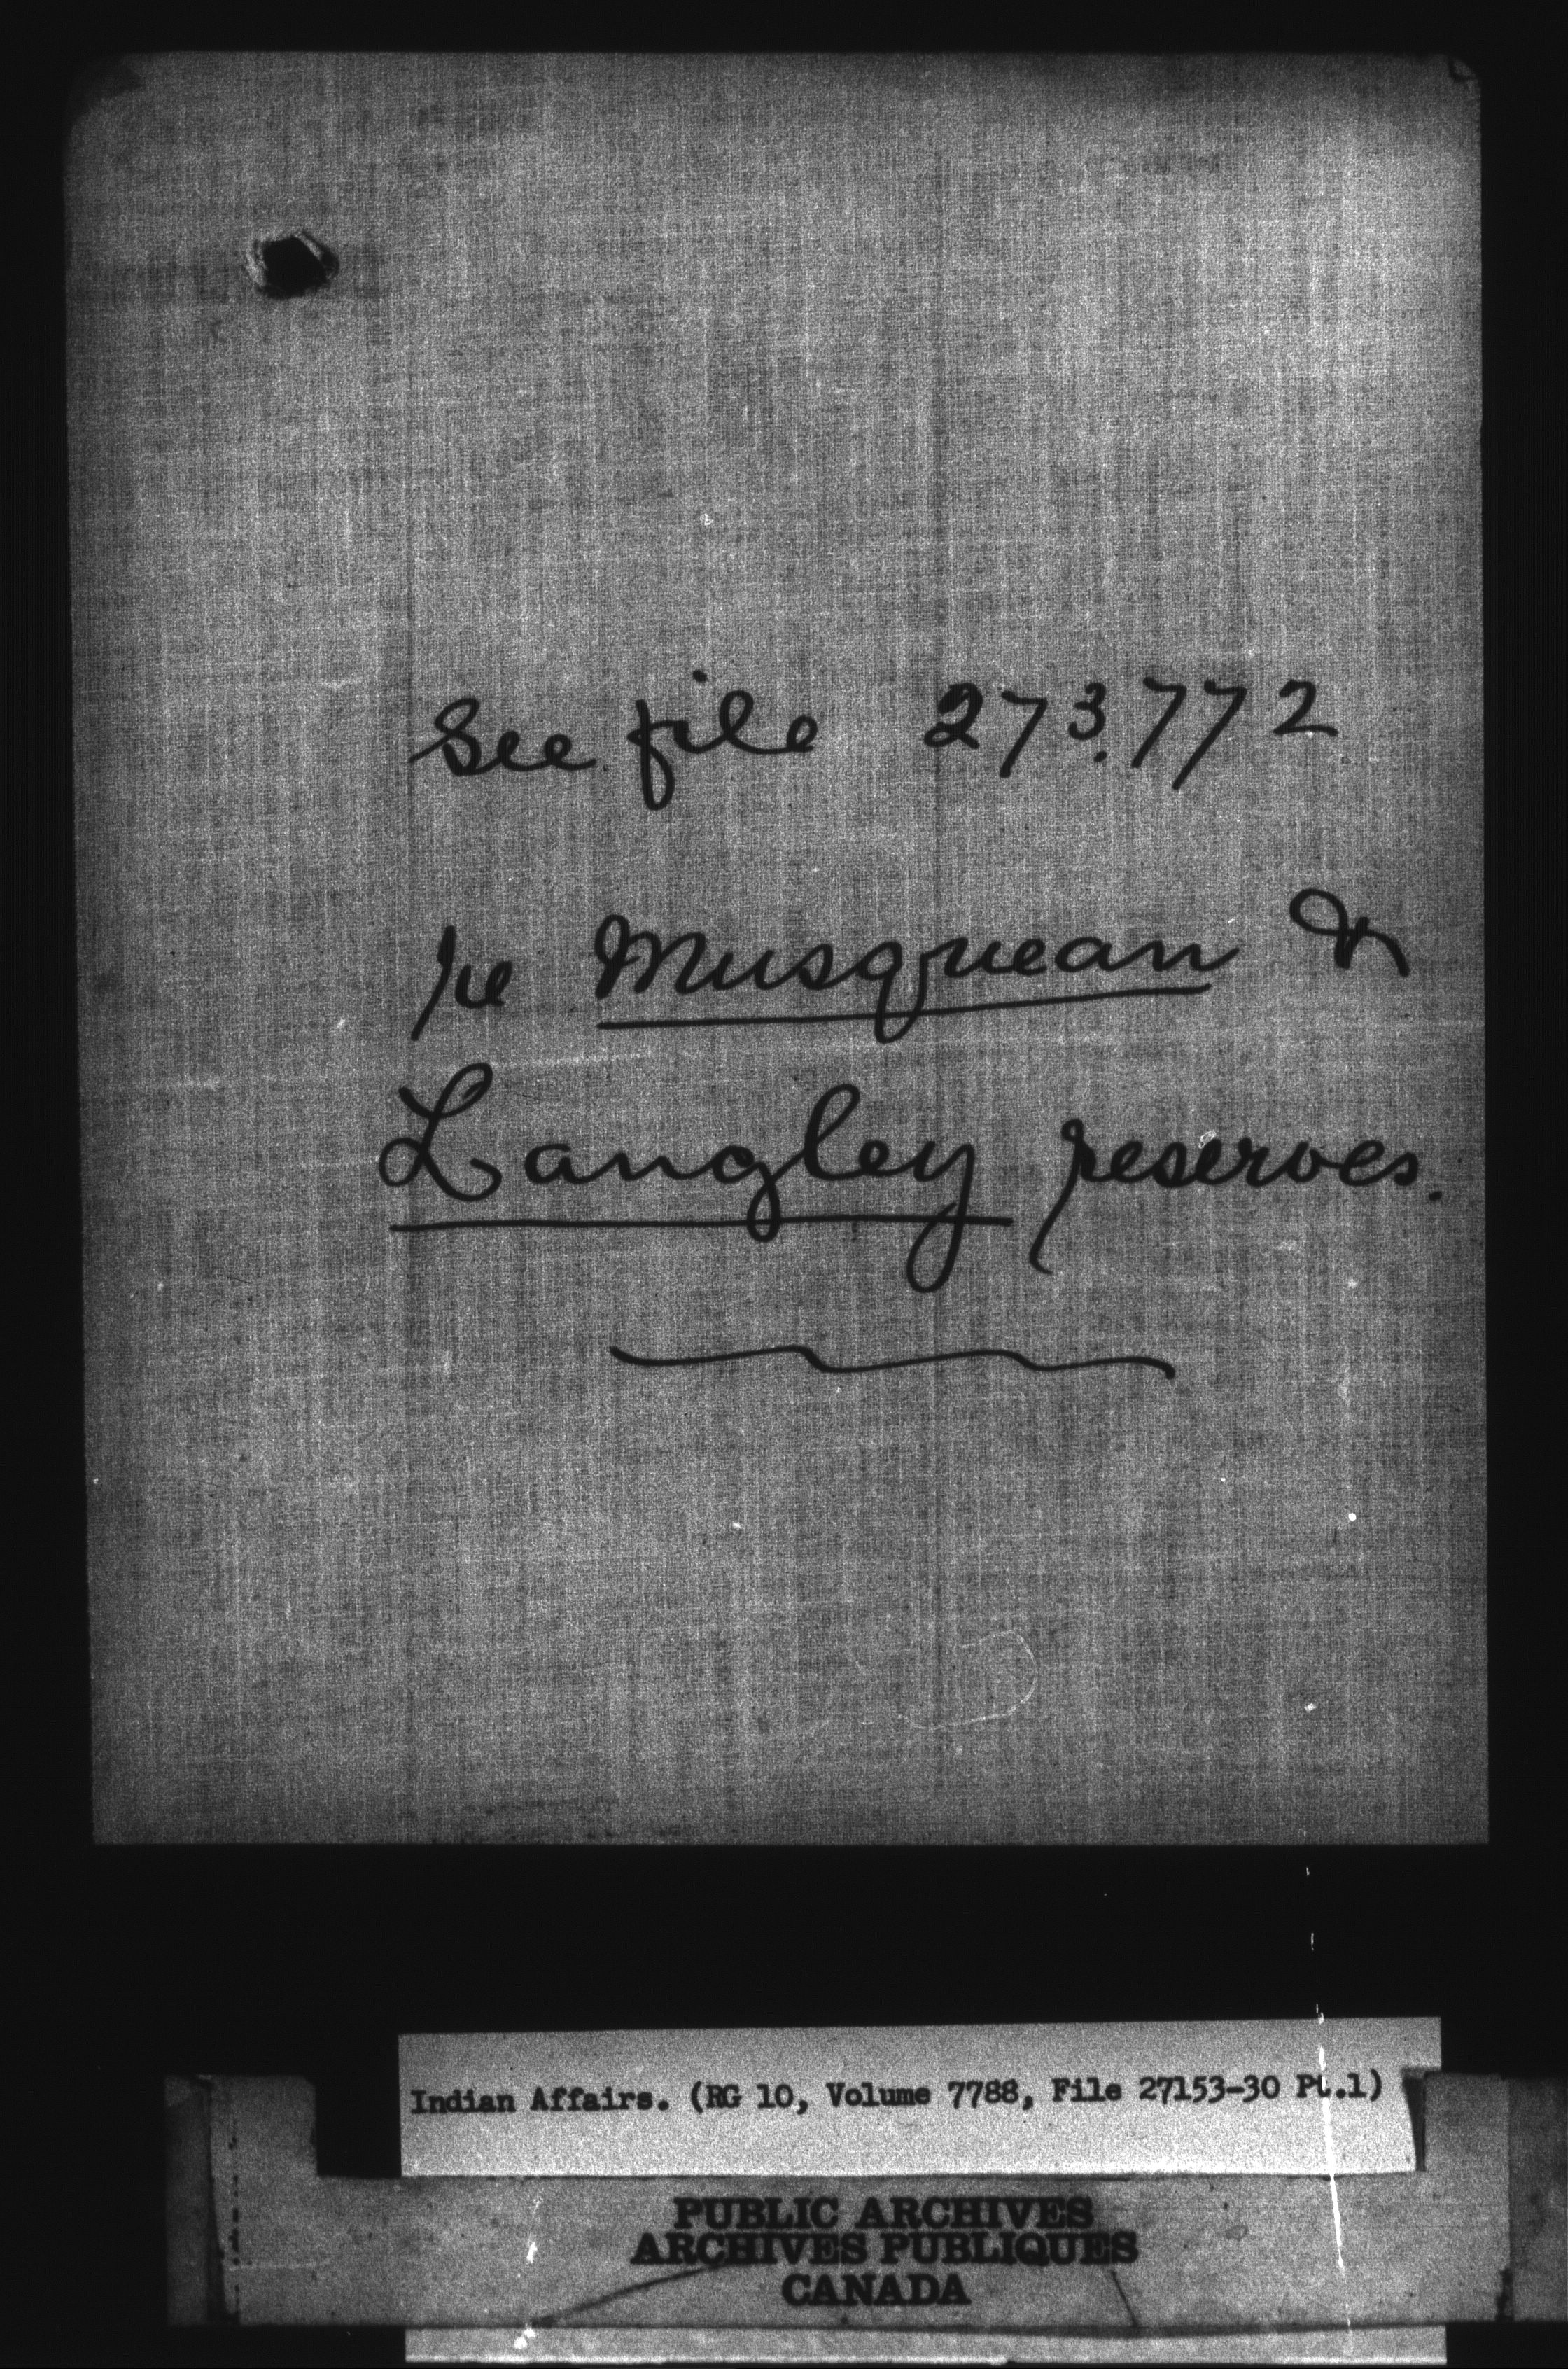 See file 273.772
re Musquean &
Langley reserves.
Indian Affairs. (RG 10, Volume 7788, File 27153-30 Pt.1)
PUBLIC ARCHIVES
ARCHIVES PUBLIQUES
CANADA